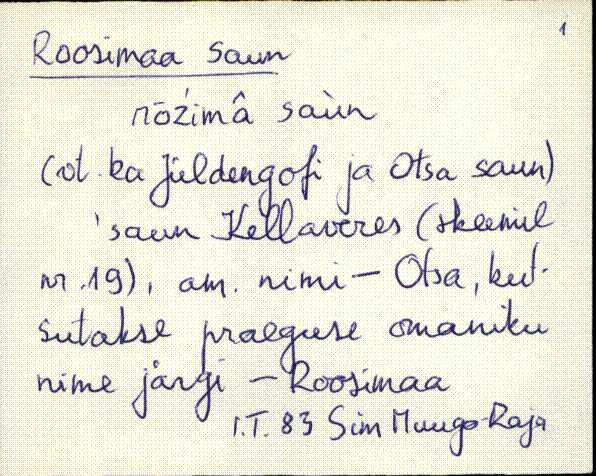 1
Roosimaa saun
rōźimâ saùn
(vt. ka Jüldengofi ja Otsa saun)
'saun Kellaveres (skeemil
nr. 19), am. nimi – Otsa, kut-
sutakse praeguse omaniku
nime järgi – Roosimaa
I.T. 83 Sim Muuga-Raja